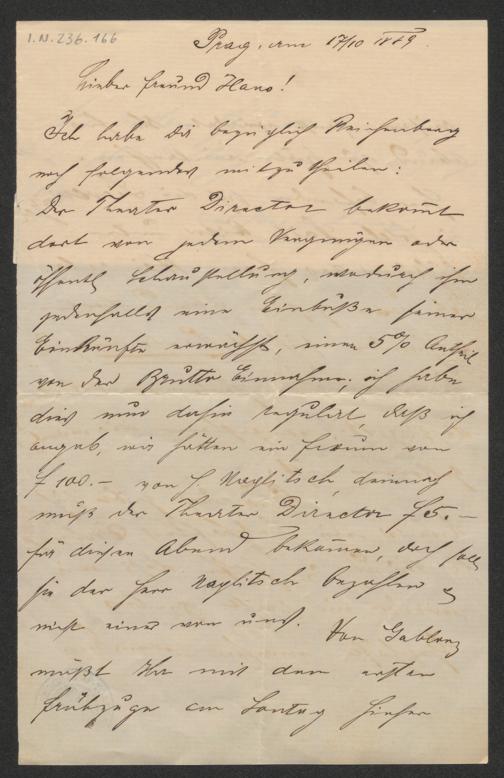 I.N.236.166
Prag, am 17/10 1889.
Lieber Freund Hans!
Ich habe Dir bezüglich Reichenberg
noch folgendes mitzutheilen:
Der Theater Director bekomt
dort von jedem Vergnügen oder
öffentl Schaustellung, wodurch ihm
jedenfalls eine Einbuße seiner
Einkünfte erwächst, einen 5% Antheil
von der Brutto Einnahme; ich habe
dies nun dahin regulirt, daß ich
angab, wir hätten ein fixum von
f 100.– von H. Naglitsch, demnach
muß der Theater Director f 5.–
für diesen Abend bekomen, doch soll
sie der Herr Naglitsch bezahlen &
nicht einer von uns. Von Gablonz
müßt Ihr mit dem ersten
Frühzuge am Sontag hieher